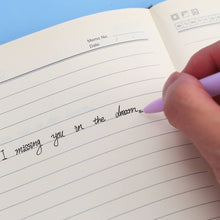 Memo No.
Date
I missing you in the dream.